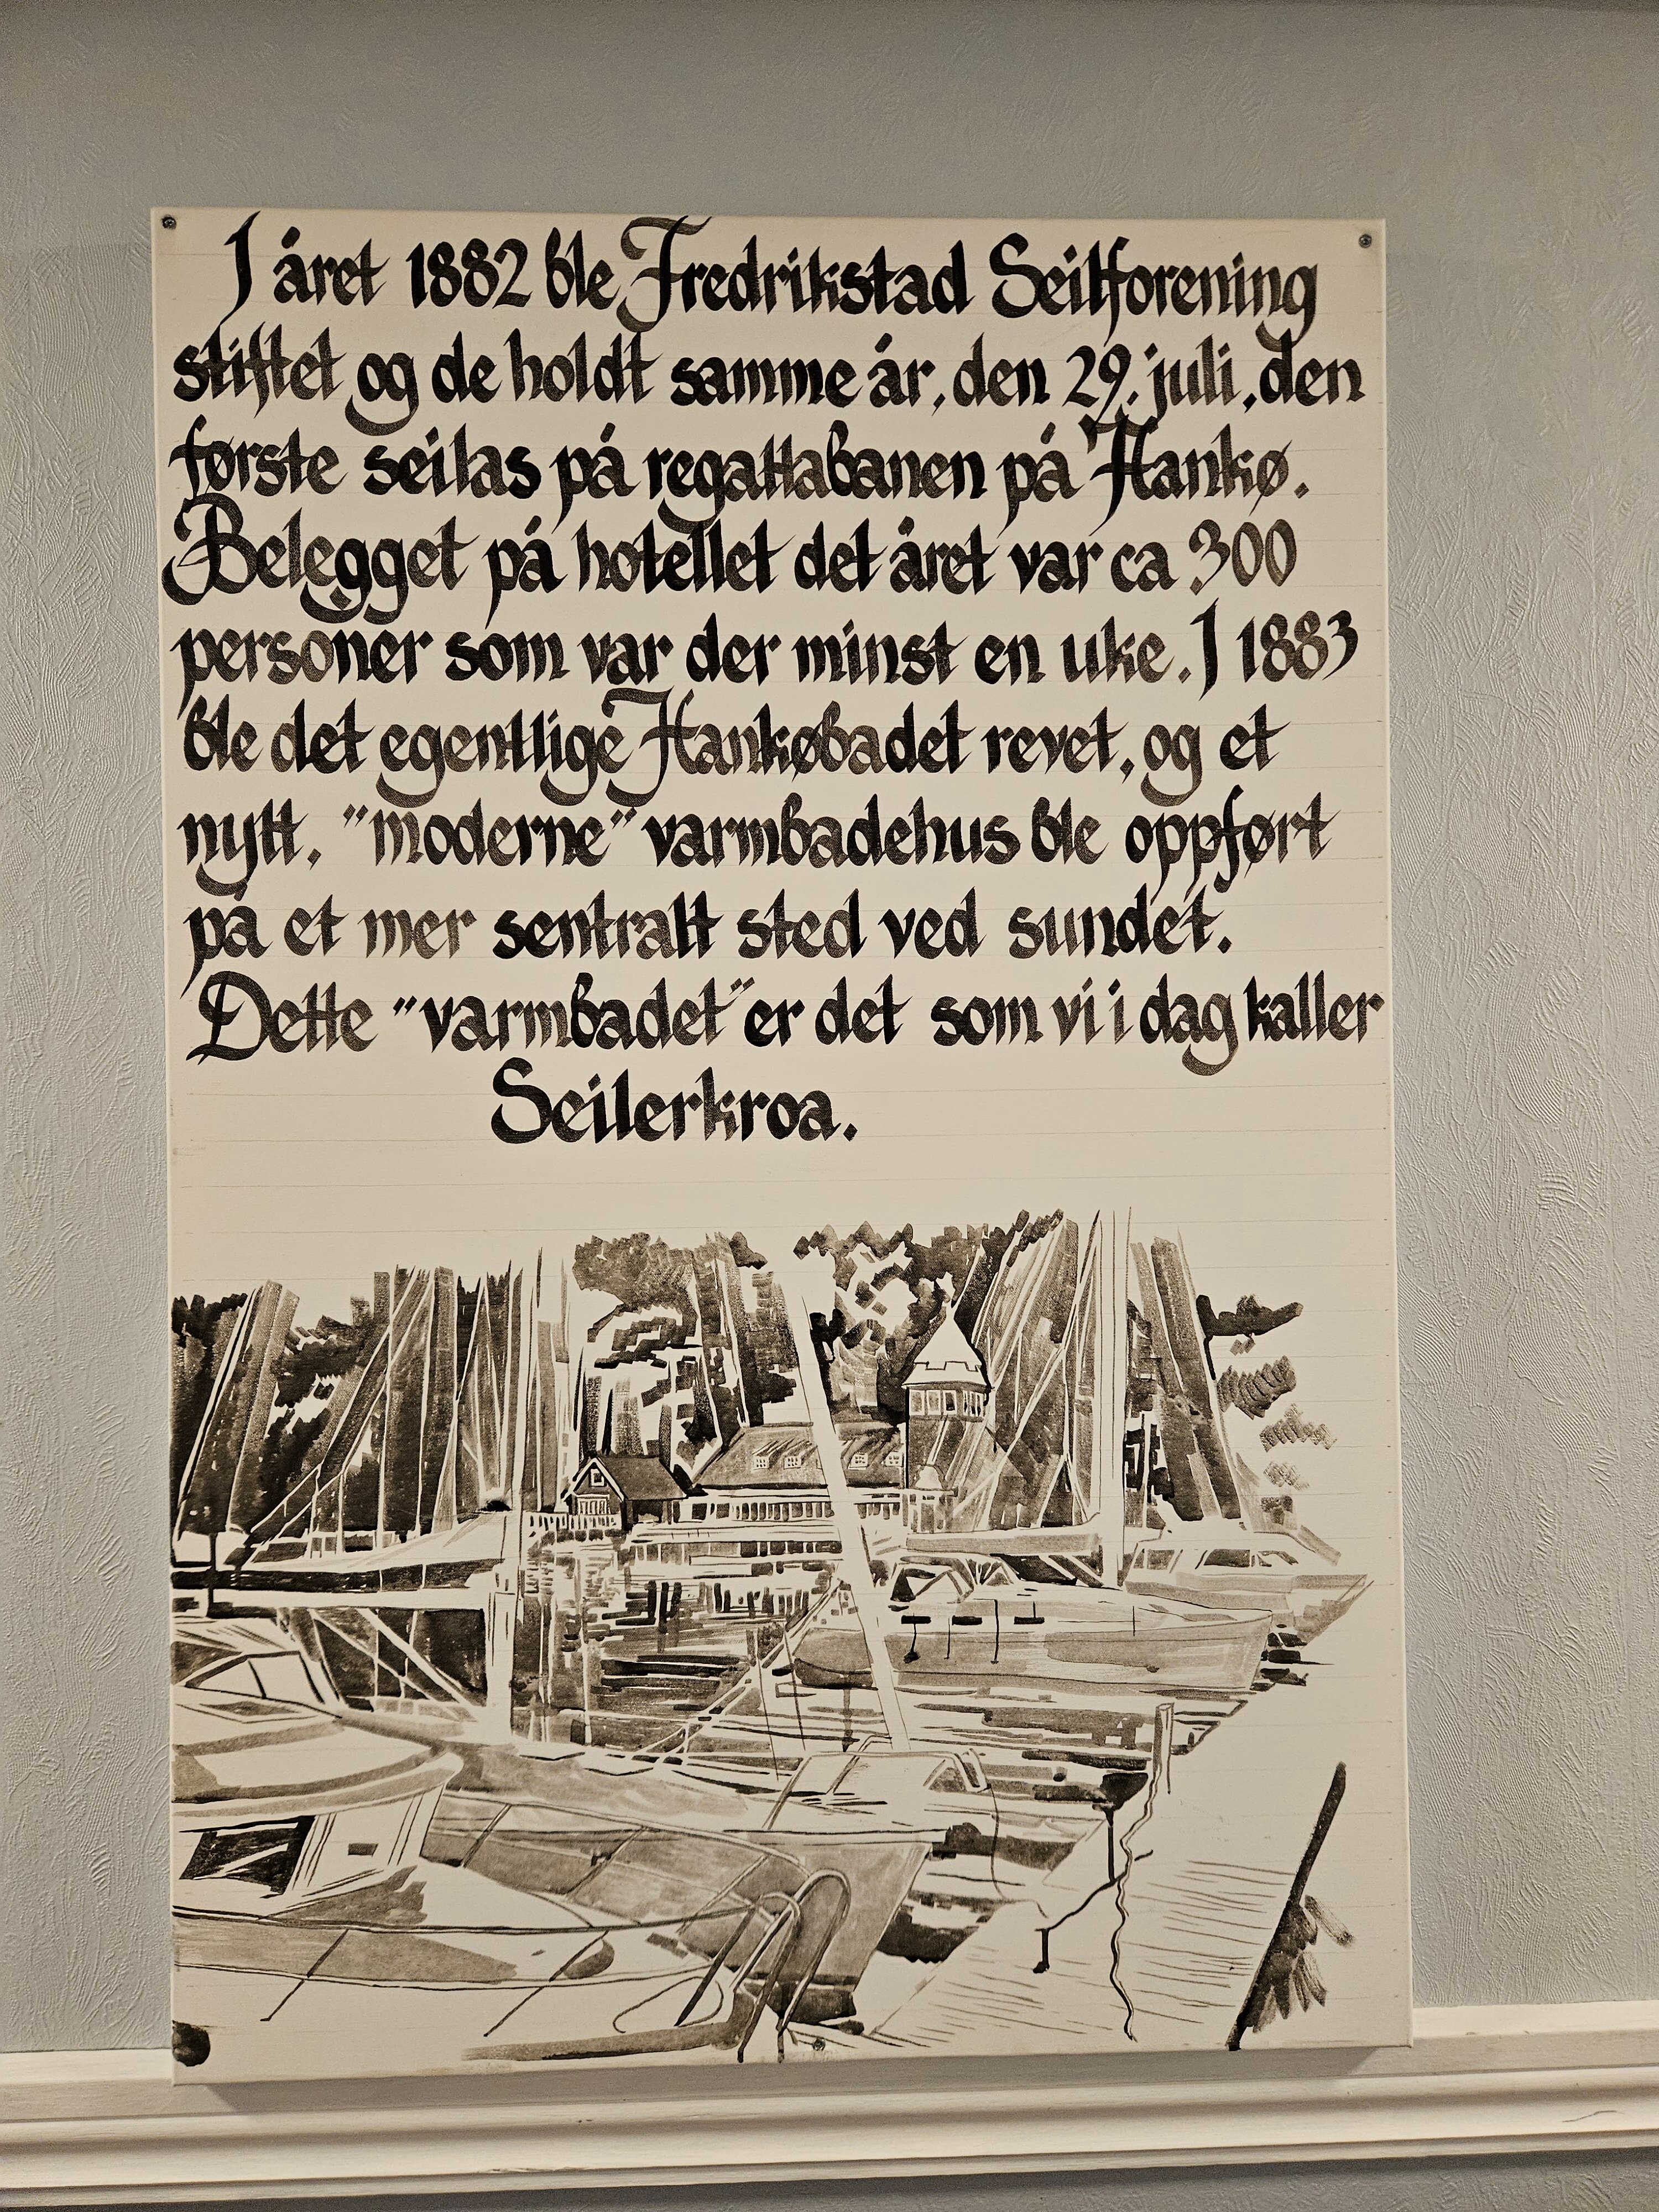 I året 1882 ble Fredrikstad Seilforening
stiftet og de holdt samme år, den 29. juli, den
første seilas på regattabanen på Hankø.
Belegget på hotellet det året var ca 300
personer som var der minst en uke. I 1883
ble det egentlige Hankøbadet revet, og et
nytt, "moderne" varmbadehus ble oppført
på et mer sentralt sted ved sundet.
Dette "varmbadet" er det som vi i dag kaller
Seilerkroa.